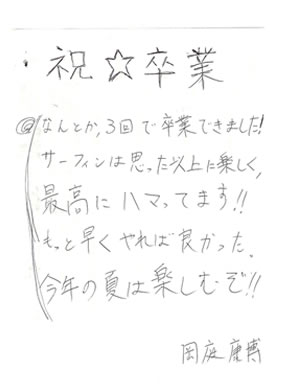 祝☆卒業
@なんとか、3回で卒業できました!
サーフィンは思った以上に楽しく、
最高にハマってます!!
もっと早くやれば良かった。
今年の夏は楽しむぞ!!
岡庭康博